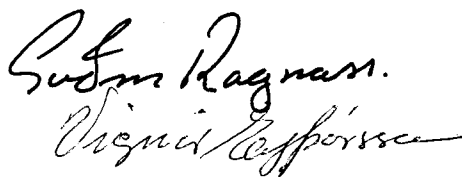 Guðm Ragnarss.
Vignir Eyþórsson